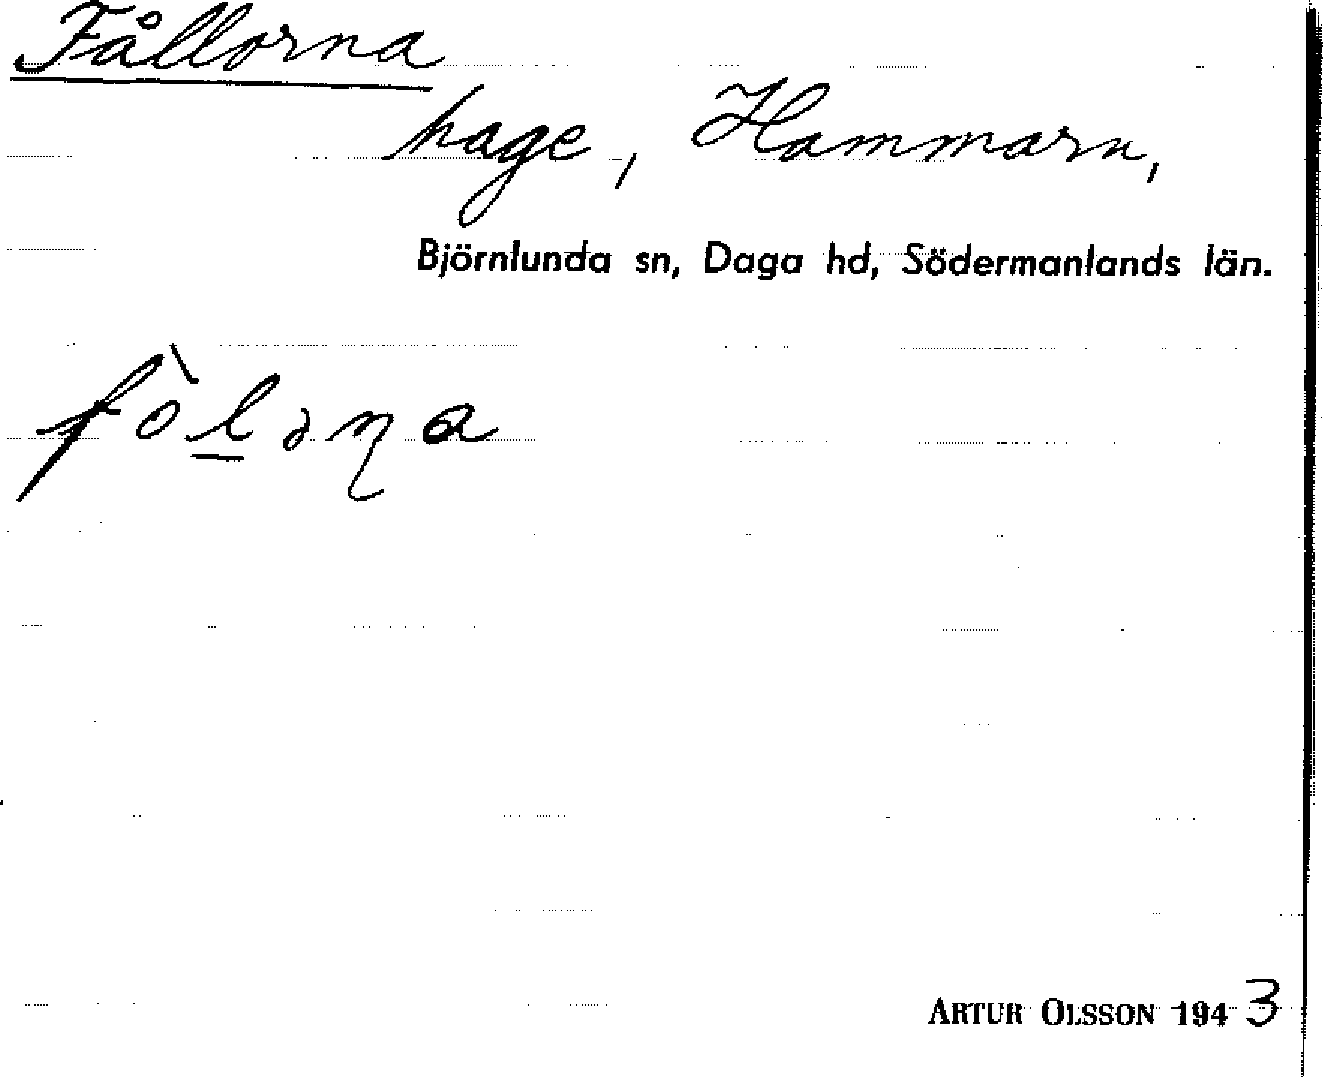 Fållorna
hage, Hammarn,
Björnlunda sn, Daga hd, Södermanlands län.
fòl̲əɳa
ARTUR OLSSON 1943